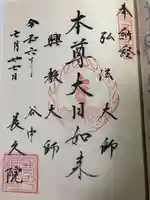 奉納経
弘法大師
本尊大日如来
興教大師
令和六年
七月廿一日
谷中
長久院